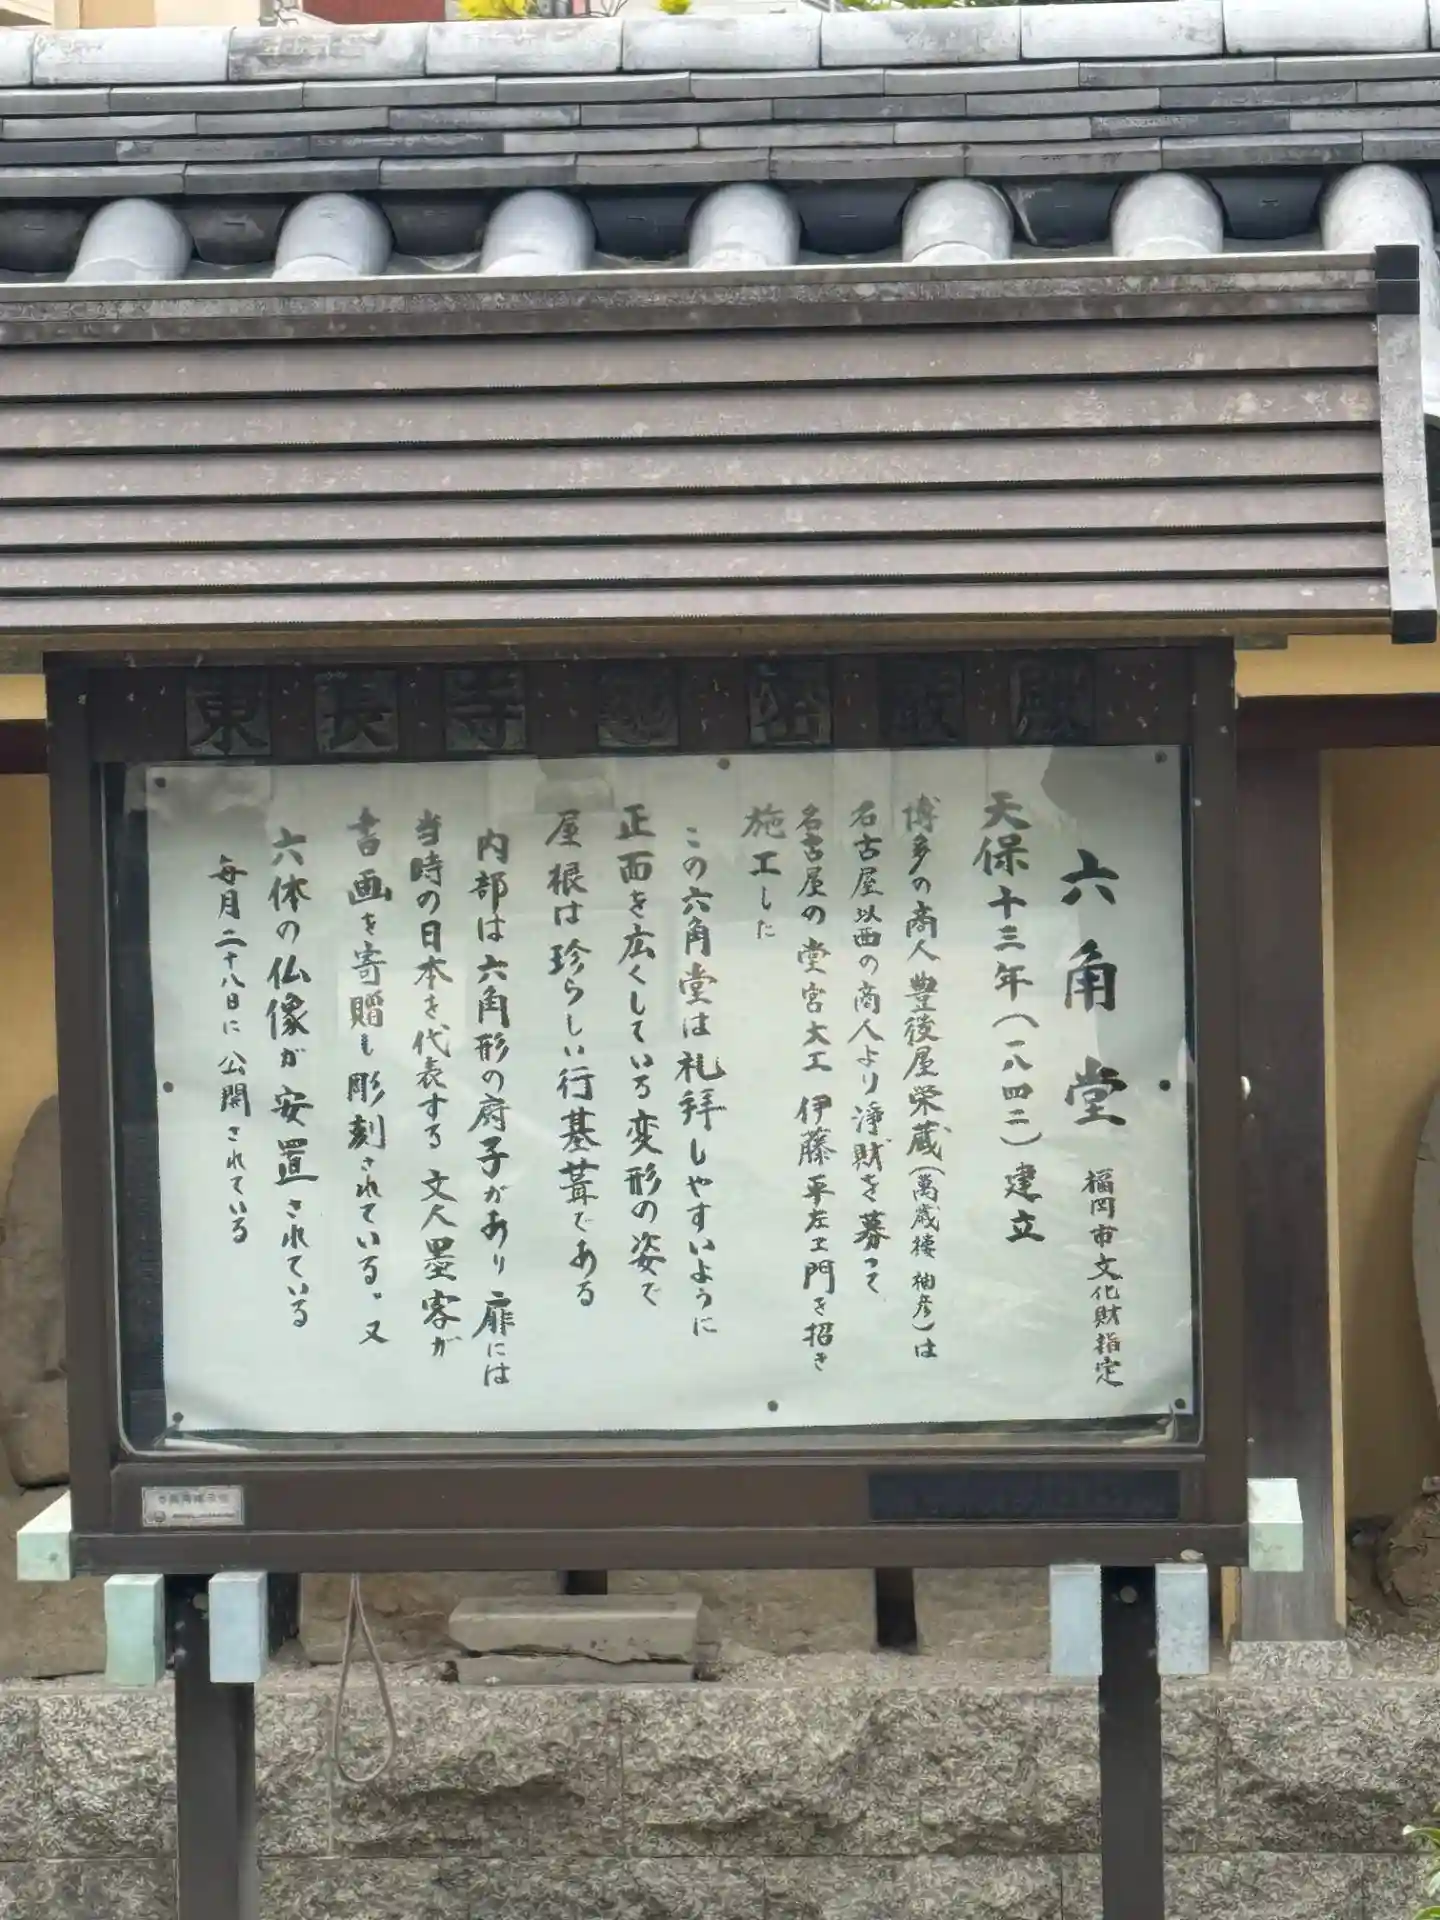 東長寺
六角堂 福岡市文化財指定
天保十三年(一八四二)建立
博多の商人 豊後屋栄蔵(萬歳楼 袖彦)は
名古屋以西の商人より浄財を募って
名古屋の堂宮大工 伊藤平左エ門を招き
施工した
この六角堂は礼拝しやすいように
正面を広くしている変形の姿で
屋根は珍らしい行基葺である
内部は六角形の厨子があり 扉には
当時の日本を代表する 文人墨客が
書画を寄贈し彫刻されている。又
六体の仏像が安置されている
毎月二十八日に公開されている